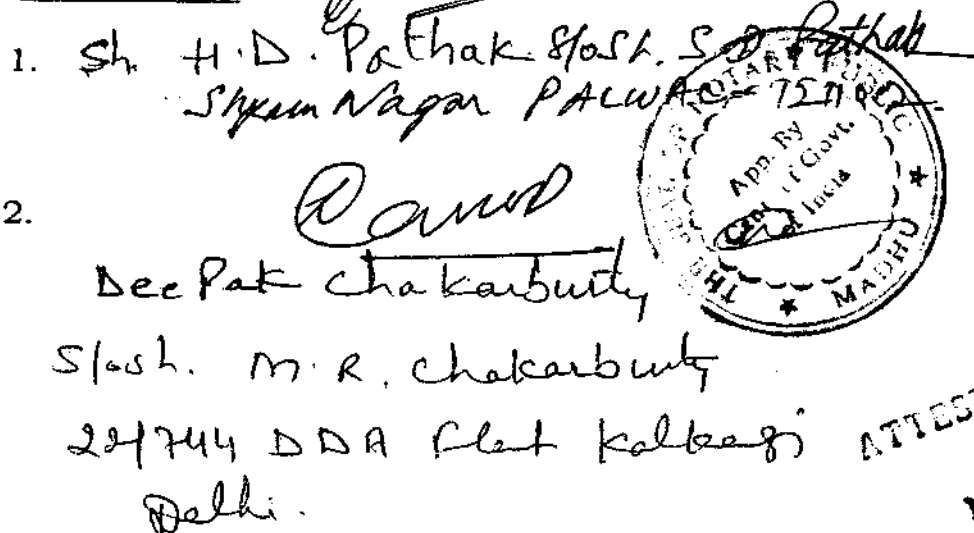 1. Sh. H.D. Pathak S/o Sh. S.D. Pathak
Shyam Nagar PALWAL
2.
DeePak Chakarburty
S/o Sh. M.R. Chakarburty
22/744 DDA Flat Kalkaji
Delhi.
NOTARY PUBLIC
App. By
Govt.
India
MADHU
ATTEST